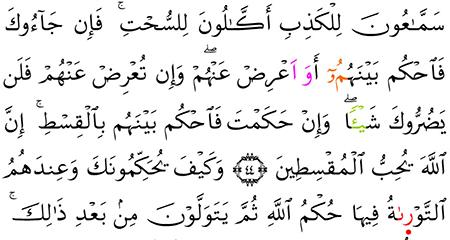 سَمَّٰعُونَ لِلْكَذِبِ أَكَّٰلُونَ لِلسُّحْتِ ۚ فَإِن جَآءُوكَ
فَٱحْكُم بَيْنَهُمُۥٓ أَوَ اَعْرِضْ عَنْهُمْ ۖ وَإِن تُعْرِضْ عَنْهُمْ فَلَن
يَضُرُّوكَ شَيْـًٔا ۖ وَإِنْ حَكَمْتَ فَٱحْكُم بَيْنَهُم بِٱلْقِسْطِ ۚ إِنَّ
ٱللَّهَ يُحِبُّ ٱلْمُقْسِطِينَ ﴿٤٤﴾ وَكَيْفَ يُحَكِّمُونَكَ وَعِندَهُمُ
ٱلتَّوْرىٰةُ فِيهَا حُكْمُ ٱللَّهِ ثُمَّ يَتَوَلَّوْنَ مِنۢ بَعْدِ ذَٰلِكَ ۚ